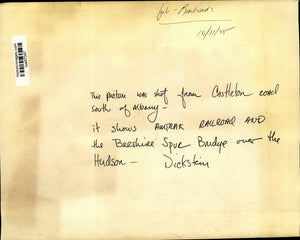 pub - Railroads
10/11/75
This picture was shot from Castleton road
south of Albany -
it shows AMTRAK RAILROAD AND
the Berkshire Spur Bridge over the
Hudson - Dickstein